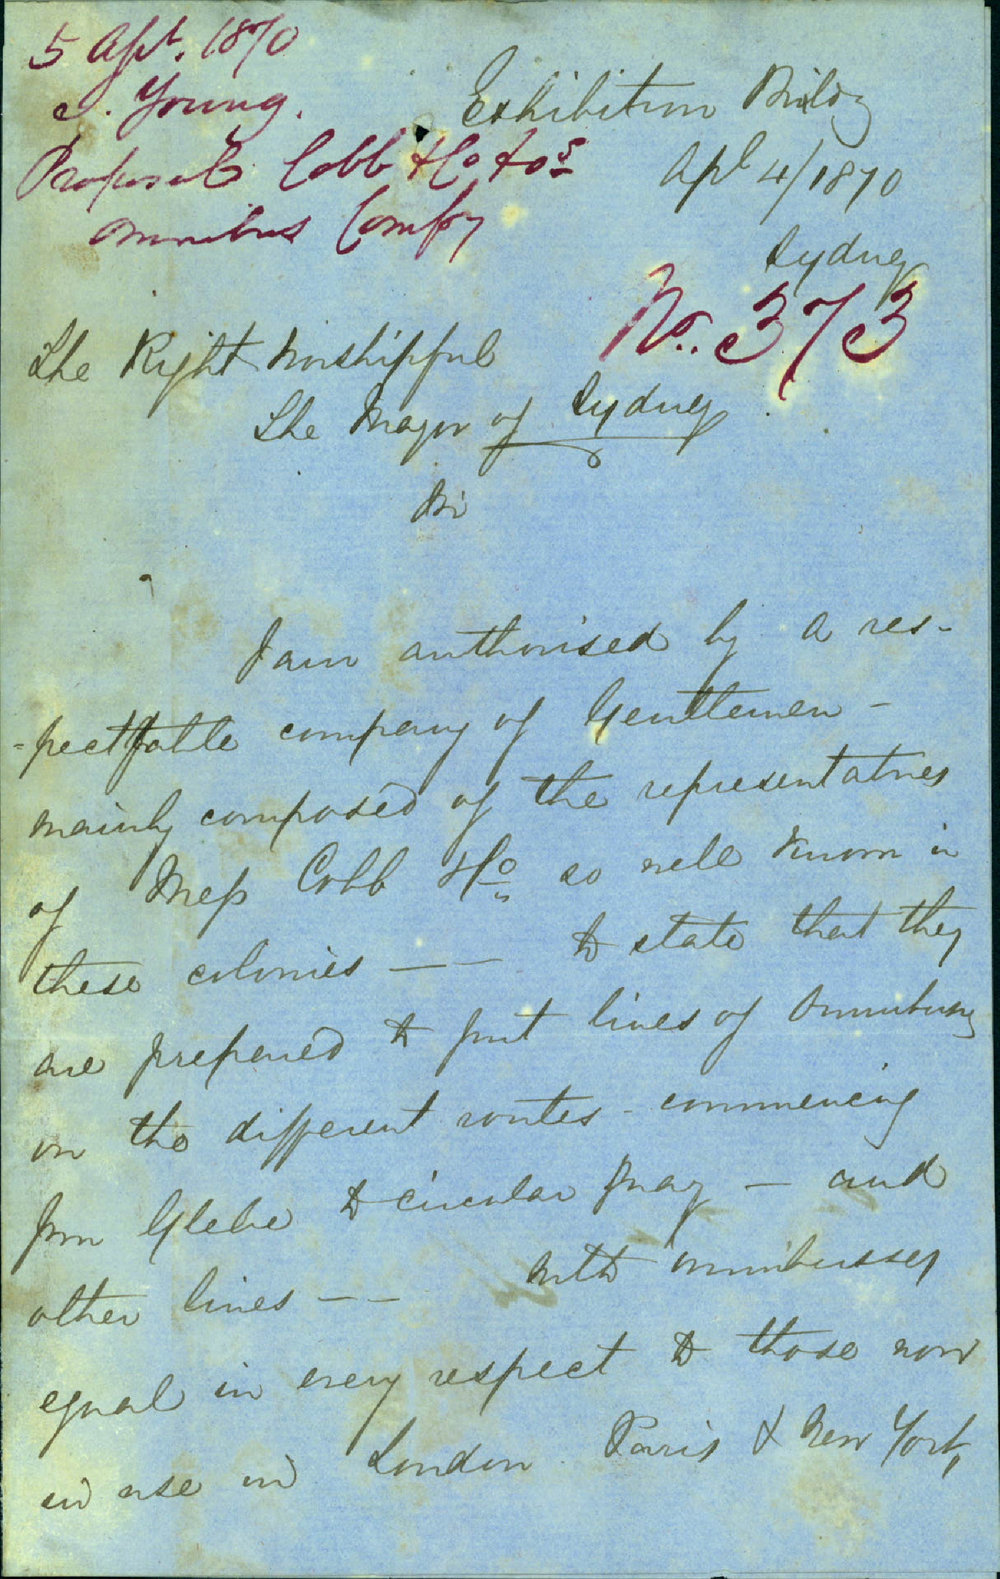 5 Apl. 1870
J. Young.
Proposals Cobb & Co & os
Omnibus Compy
Exhibition Bildg
Apl 4/1870
Sydney
No. 373
The Right Worshipful
The Mayor of Sydney
Sir
I am authorised by a res-
-pectable company of Gentlemen -
mainly composed of the representatives
of Mess Cobb & Co so well known in
these colonies -- to state that they
are prepared to put lines of Omnibuses
on the different routes - commencing
from Glebe to circular Quay - and
other lines -- with omnibusses
equal in every respect to those now
in use in London Paris & New York,